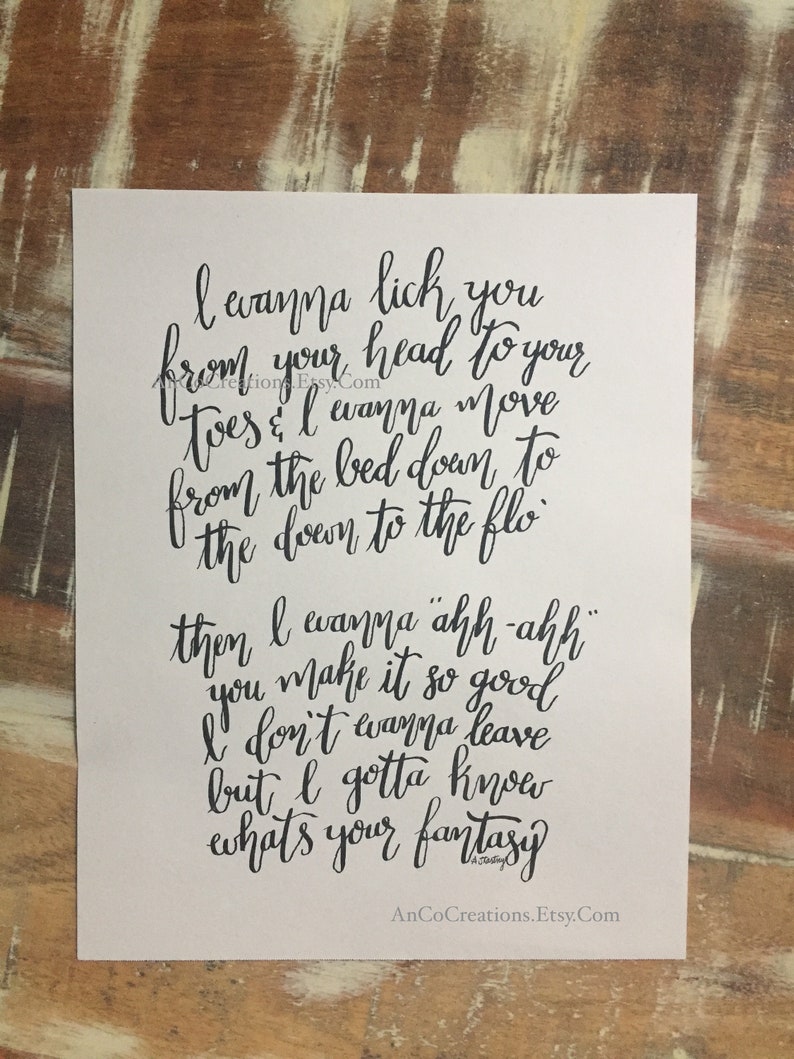 I wanna lick you
from your head to your
AnCoCreations.Etsy.Com
toes & I wanna move
from the bed down to
the down to the flo'
then I wanna "ahh-ahh"
you make it so good
I don't wanna leave
but I gotta know
whats your fantasy
AnCoCreations.Etsy.Com